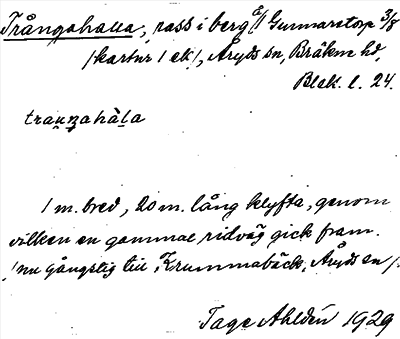 Trångahalla, pass i berg å/ Gunnarstorp 3/8
/kartur 1 ek/, Åryds sn, Bräkne hd,
Blek. l. 24.
traŋ̱ahàl̠a
1 m. bred, 20 m. lång klyfta, genom
vilken en gammal ridväg gick fram.
/nu gångstig till Krummabäck, Åryds sn/.
Tage Ahldén 1929